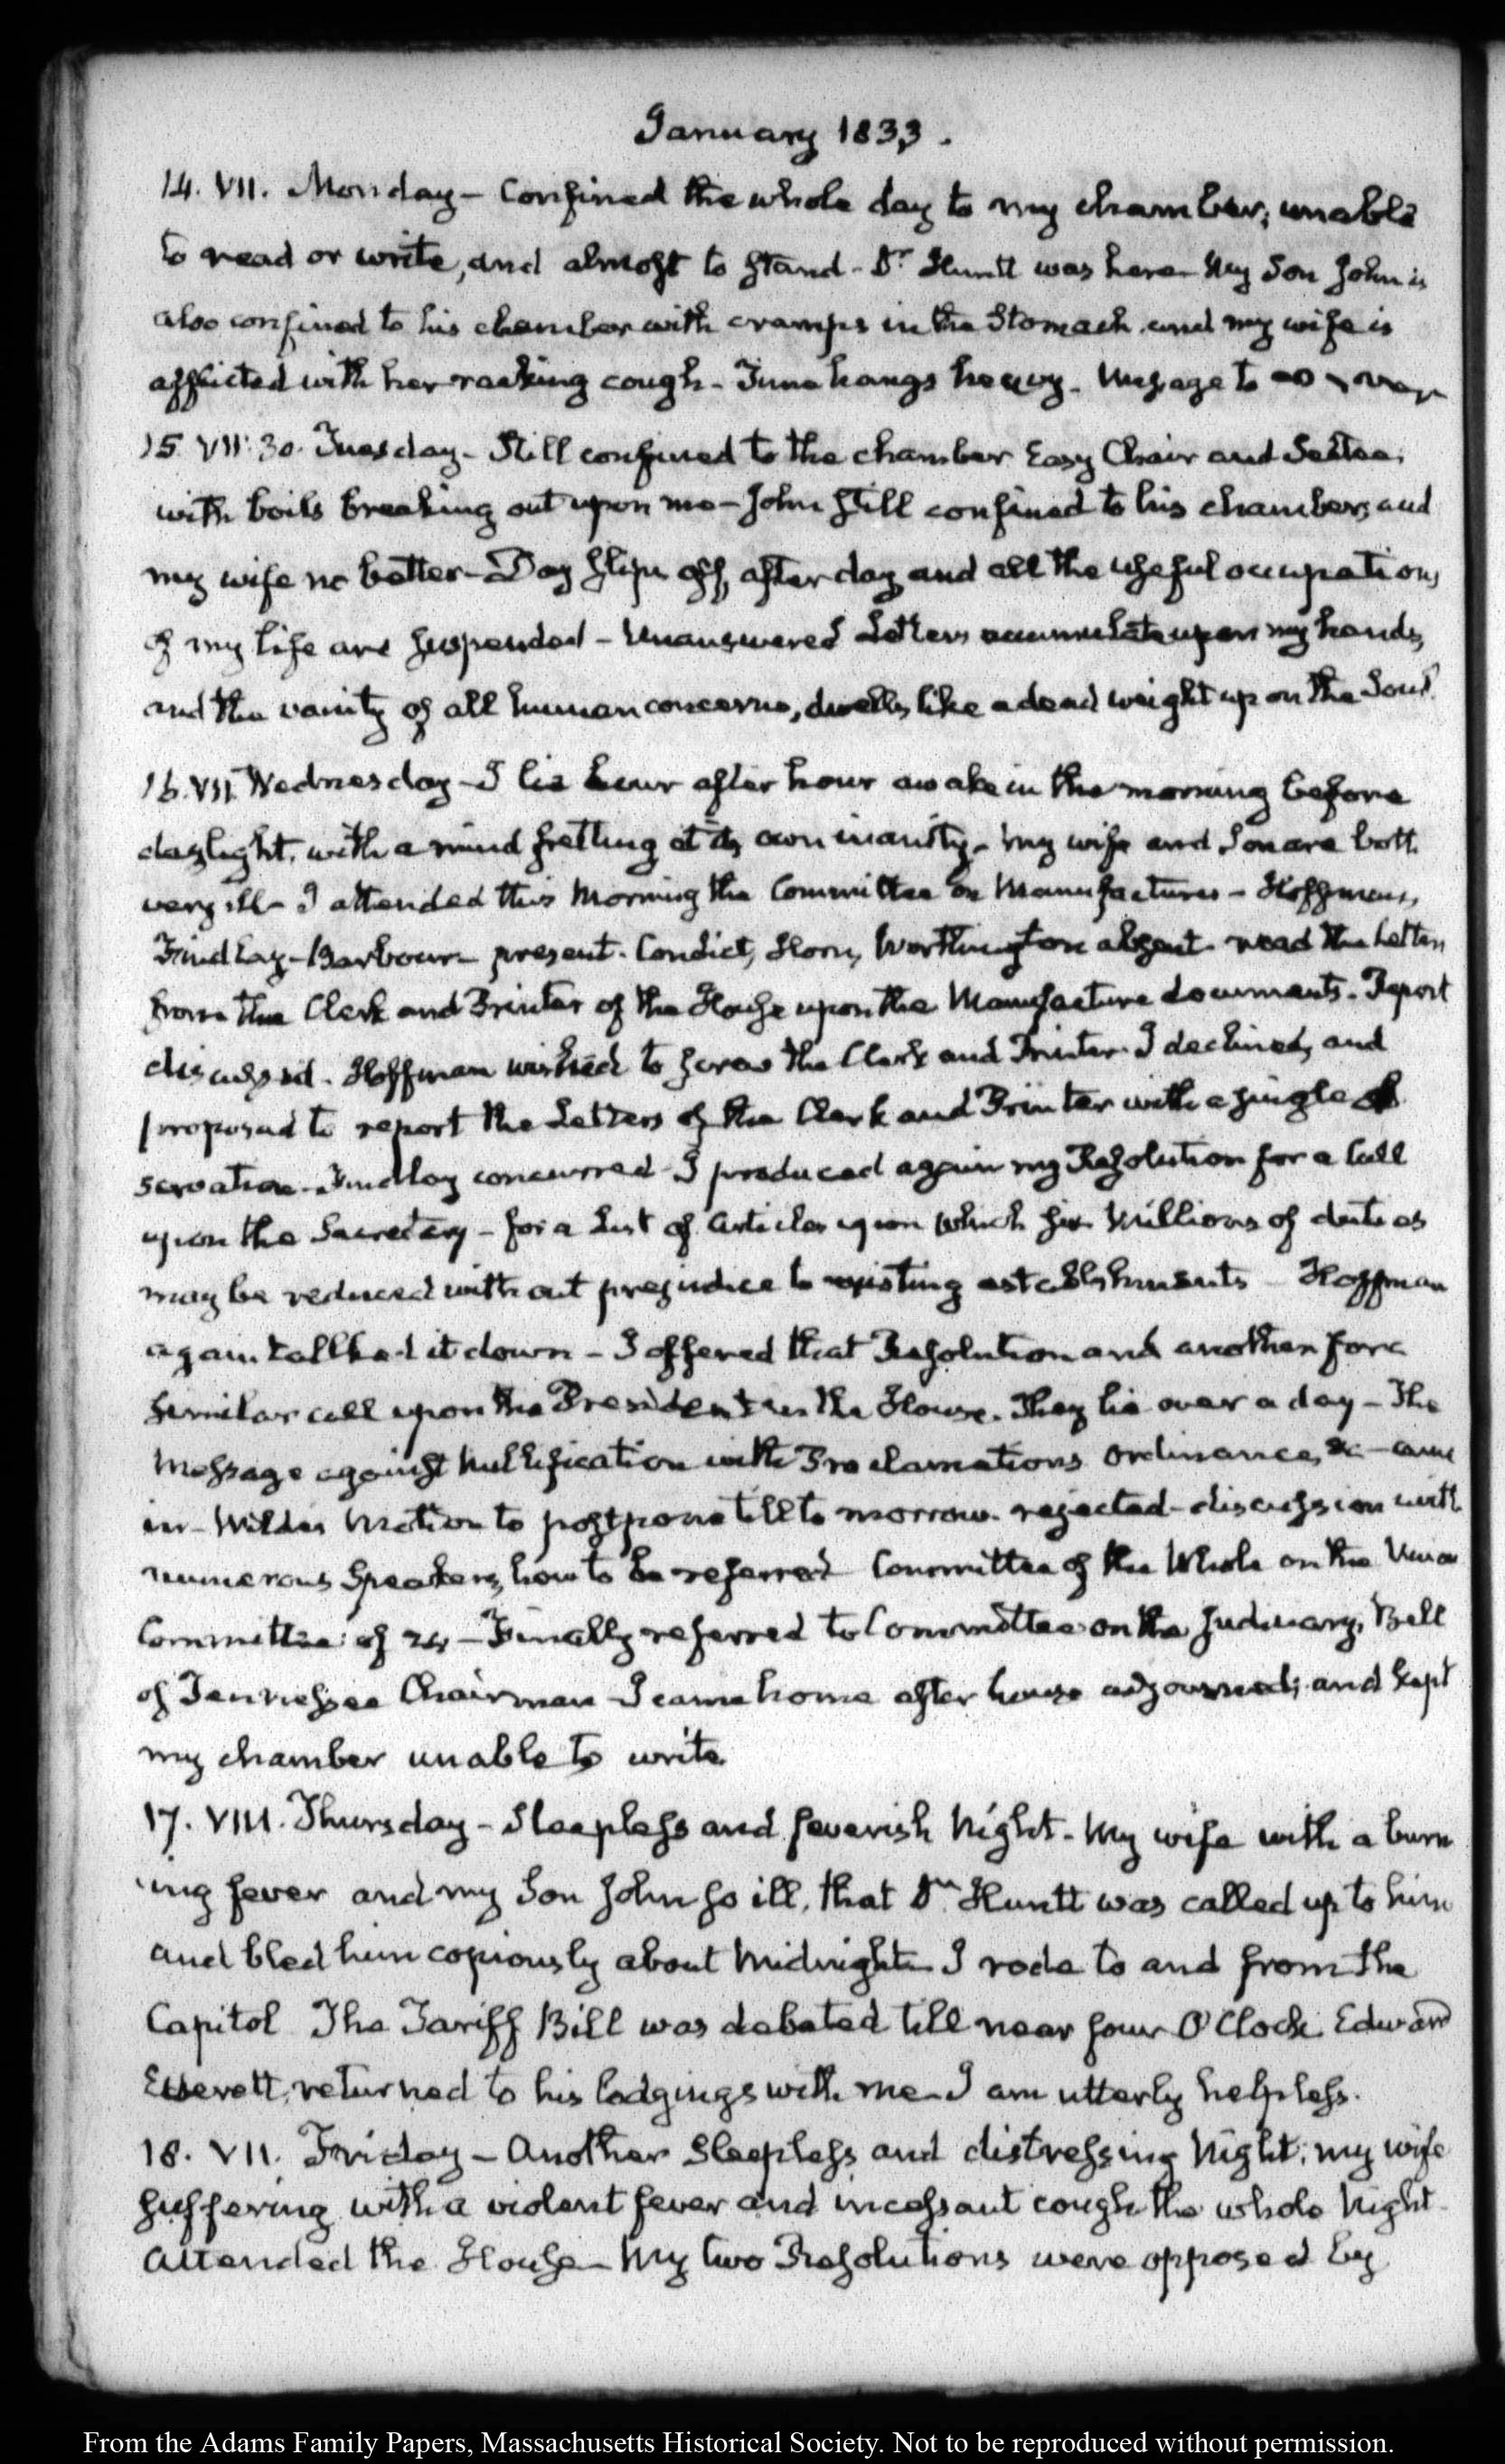 January 1833.
14. VII. Monday – Confined the whole day to my chamber; unable
to read or write, and almost to stand – Dr. Huntt was here – My Son John is
also confined to his chamber with cramps in the Stomach and my wife is
afflicted with her racking cough – Time hangs heavy. Message to
15 VII:30. Tuesday – Still confined to the chamber Easy Chair and Settee;
with boils breaking out upon me – John still confined to his chamber, and
my wife no better – Day slips off, after day and all the useful occupations
of my life are suspended – Unanswered Letters accumulate upon my hands,
and the vanity of all human concerns, dwells like a dead weight upon the Soul.
16. VII. Wednesday – I lie hour after hour awake in the morning before
daylight, with a mind fretting at its own inanity – My wife and Son are both
very ill – I attended this Morning the Committee on Manufactures – Hoffman,
Findlay – Barbour – present. Condict, Horn, Worthington absent – read the Letters
from the Clerk and Printer of the House upon the Manufacture documents – Report
discussed. Hoffman wished to screw the Clerk and Printer. I declined, and
proposed to report the Letters of the Clerk and Printer with a single ob
servation – Findlay concurred – I produced again my Resolution for a Call
upon the Secretary – for a List of Articles upon which six Millions of duties
may be reduced without prejudice to existing establishments – Hoffman
again talked it down – I offered that Resolution and another for a
similar call upon the President in the House. They lie over a day – The
Message against Nullification with Proclamations Ordinance, &c – came
in – Wilde's Motion to postpone till to morrow rejected – discussion with
numerous Speakers, how to be referred Committee of the Whole on the Union
Committee of 24 – Finally referred to Committee on the Judiciary, Bell
of Tennessee Chairman – I came home after house adjourned; and kept
my chamber unable to write.
17. VIII. Thursday – Sleepless and feverish Night – My wife with a burn
ing fever and my Son John so ill, that Dr. Huntt was called up to him
and bled him copiously about Midnight – I rode to and from the
Capitol The Tariff Bill was debated till near four O'Clock. Edward
Everett, returned to his lodgings with me – I am utterly helpless.
18. VII. Friday – Another Sleepless and distressing Night; my wife
suffering with a violent fever and incessant cough the whole Night –
Attended the House – My two Resolutions were opposed by
From the Adams Family Papers, Massachusetts Historical Society. Not to be reproduced without permission.